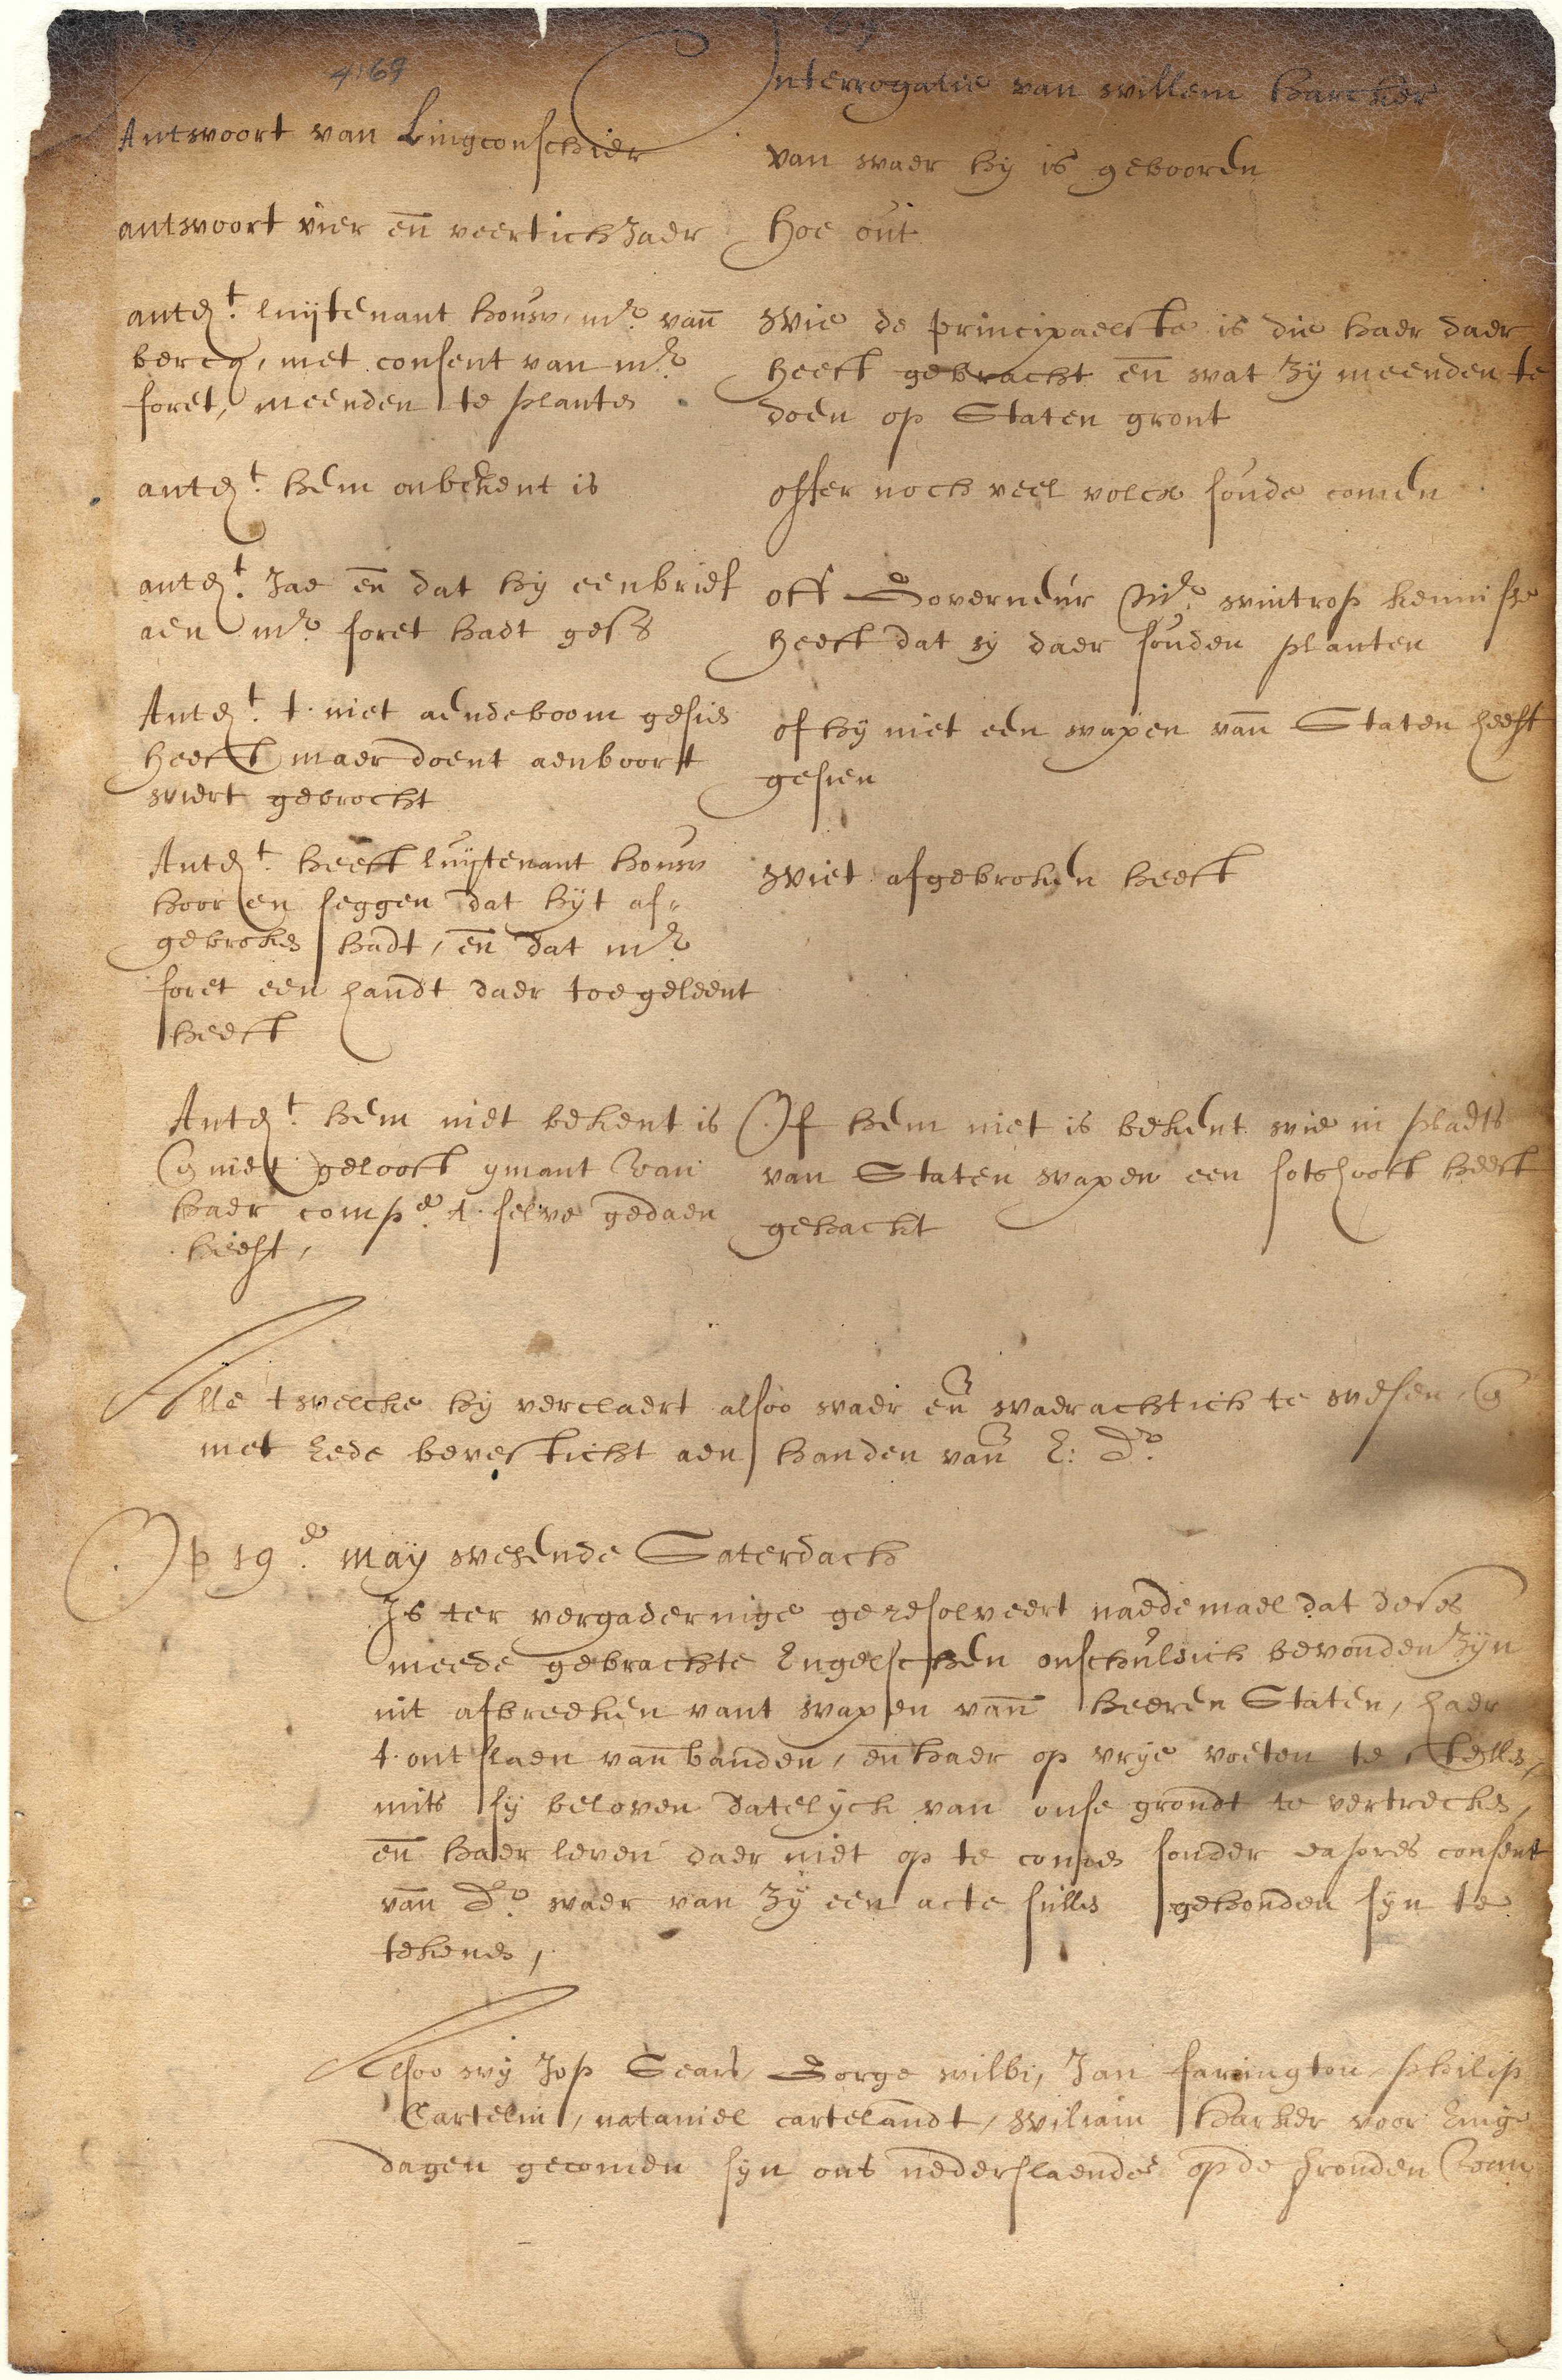 4:69
Interrogatie van willem harcker
Antwoort van Lingconschier
van waer hy is gebooren
antwoort vier en̄ veertich Jaer
hoe out
antd.t luijtenant houw, mr van̄
bercq, met consent van mr
foret, meenden te plante
wie de principaelste is die haer daer
heeft gebracht en̄ wat zij meenden te
doen op Staten gront
antd.t hem onbekent is
offer noch veel volcx soude comen
antd.t Jae en̄ dat hij een brief
aen mr foret hadt
off Governeur Mr wintrop kennisse
heeft dat sy daer souden planten
Antd.t t niet aende boom gesien
heeft maer doent aenboort
wiert gebrocht
of hij niet een wapen van̄ Staten heeft
gesien
Antd.t heeft luijtenant houw
hooren seggen dat hijt af-
gebroken hadt, en̄ dat mr
foret een handt daer toe geleent
heeft
wiet afgebroken heeft
Antd.t hem niet bekent is
niet gelooft ymant van
haer compe. t selve gedaen
heeft,
Of hem niet is bekent wie in plaets
van Staten wapen een sotshooft heeft
gehackt
Alle t welcke hij verclaert alsoo waer en̄ waerachtich te wesen,
met Eede bevesticht aen handen van̄ E: Dr
Op 19e. maij wesende Saterdach
Is ter vergaderinge geresolveert naedemael dat dese
meede gebrachte Engelschen onschuldich bevonden zijn
int afbreeken vant wapen van̄ heeren Staten, haer
t. ontslaen van̄ banden, en̄ haer op vrije voeten te stellen,
mits sij beloven datelijck van onse grondt te vertrecken,
en̄ haer leven daer niet op te comen sonder expres consent
van̄ Dr. waer van zij een acte sullen gehouden sijn te
tekenen,
Alsoo wij Jop Sears, Gorge wilbi, Jan farington philip
Cartelin, nataniel cartelandt, wiliam harker voor Enige
dagen gecomen sijn ons nederslaende op de gronden van